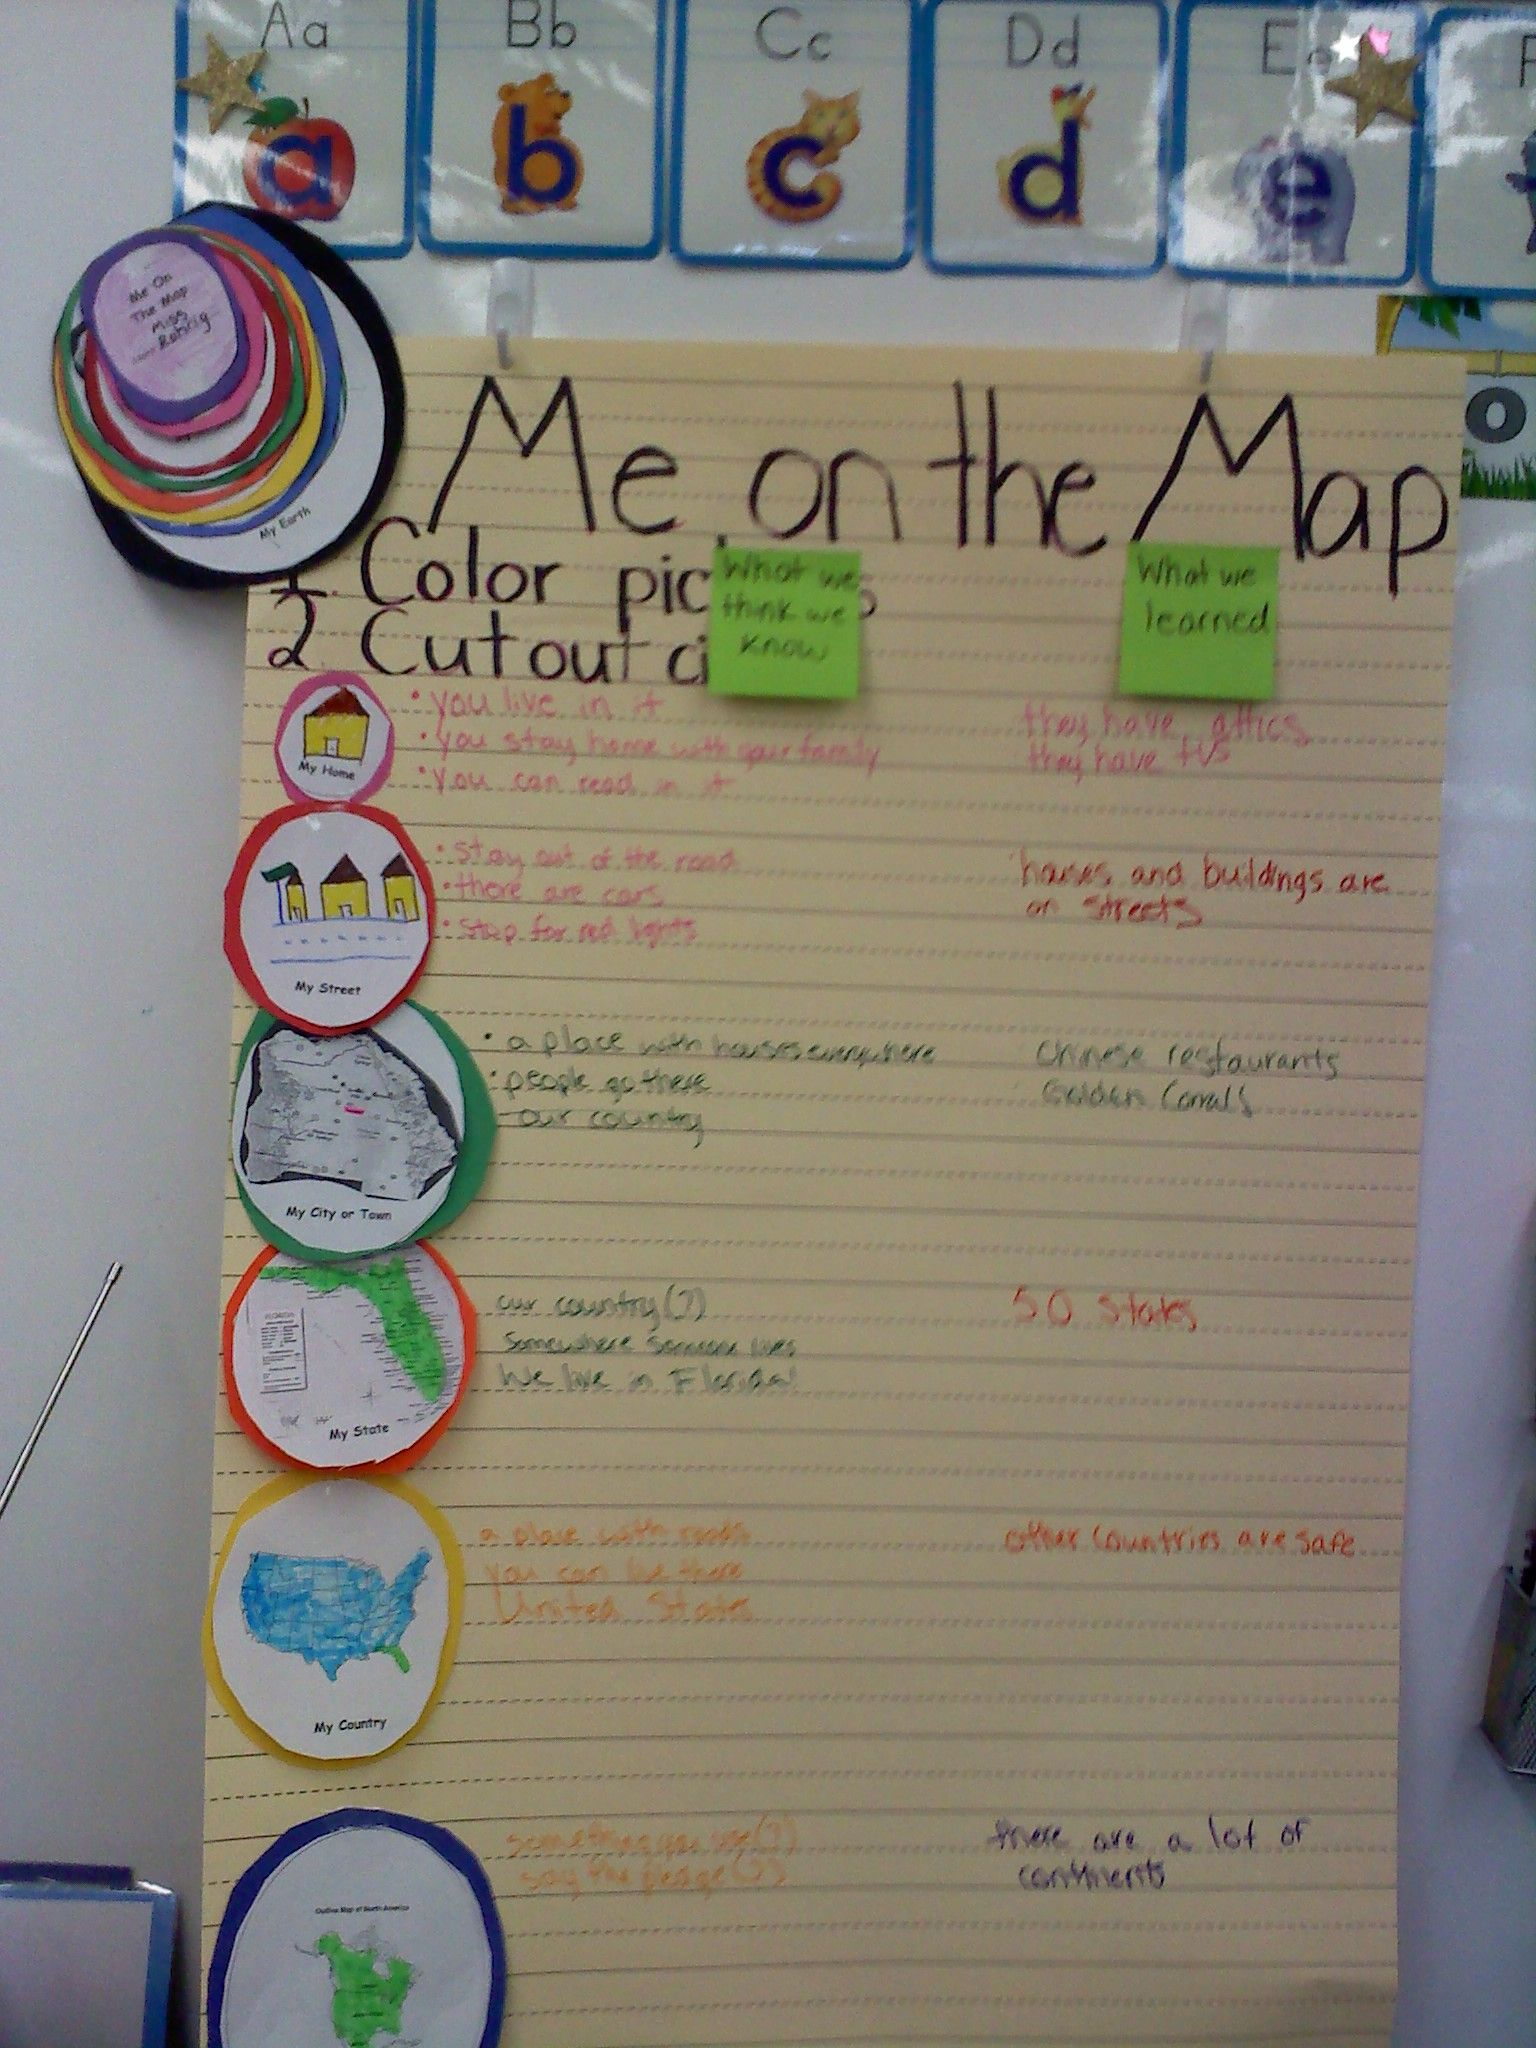 Aa
Bb
Cc
Dd
a
b
c
d
e
Me On
The Map
Miss
Rohrig
My Earth
Me on the Map
1. Color pic
2. Cut out ci
What we
think we
know
What we
learned
My Home
• you live in it
• you stay home with your family
• you can read in it
they have attics
they have tvs
My Street
• stay out of the road
• there are cars
• stop for red lights
houses and buildings are
on streets
My City or Town
• a place with houses everywhere
• people go there
our country
Chinese restaurants
Golden Corrals
My State
our country(?)
Somewhere someone lives
We live in Florida!
50 states
My Country
a place with roads
you can live there
United States
other countries are safe
Outline Map of North America
something you use(?)
say the pledge(?)
there are a lot of
continents